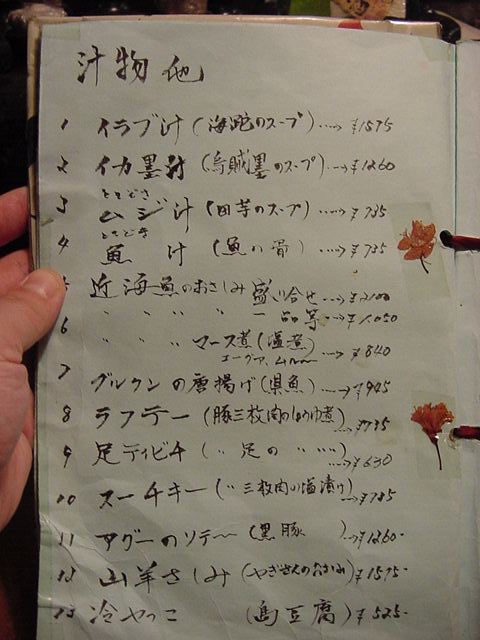 汁物他
1 イラブ汁 (海蛇のスープ) ‥‥→ ¥1575
2 イカ墨汁 (烏賊墨のスープ) ‥‥→ ¥1260
ときどき
3 ムジ汁 (田芋のスープ) ‥‥→ ¥735
ときどき
4 魚汁 (魚の骨) ‥‥→ ¥735
5 近海魚のおさしみ 盛り合せ ‥‥→ ¥2100
〃 〃 〃 〃 一品等 ‥→ ¥1.050
6 〃 〃 〃 マース煮 (塩煮) ‥→ ¥840
7 グルクンの唐揚げ (県魚) ‥‥→ ¥945
8 ラフテー (豚三枚肉のしょうゆ煮) ‥‥→ ¥735
9 足ティビチ (〃 足の 〃 〃) ‥‥→ ¥630
10 スーチキー (〃 三枚肉の塩漬け) ‥→ ¥735
11 アグーのソテー (黒豚) ‥→ ¥1260-
12 山羊さしみ (やぎさんのおさしみ) ‥→ ¥1575-
13 冷やっこ (島豆腐) ‥→ ¥525-